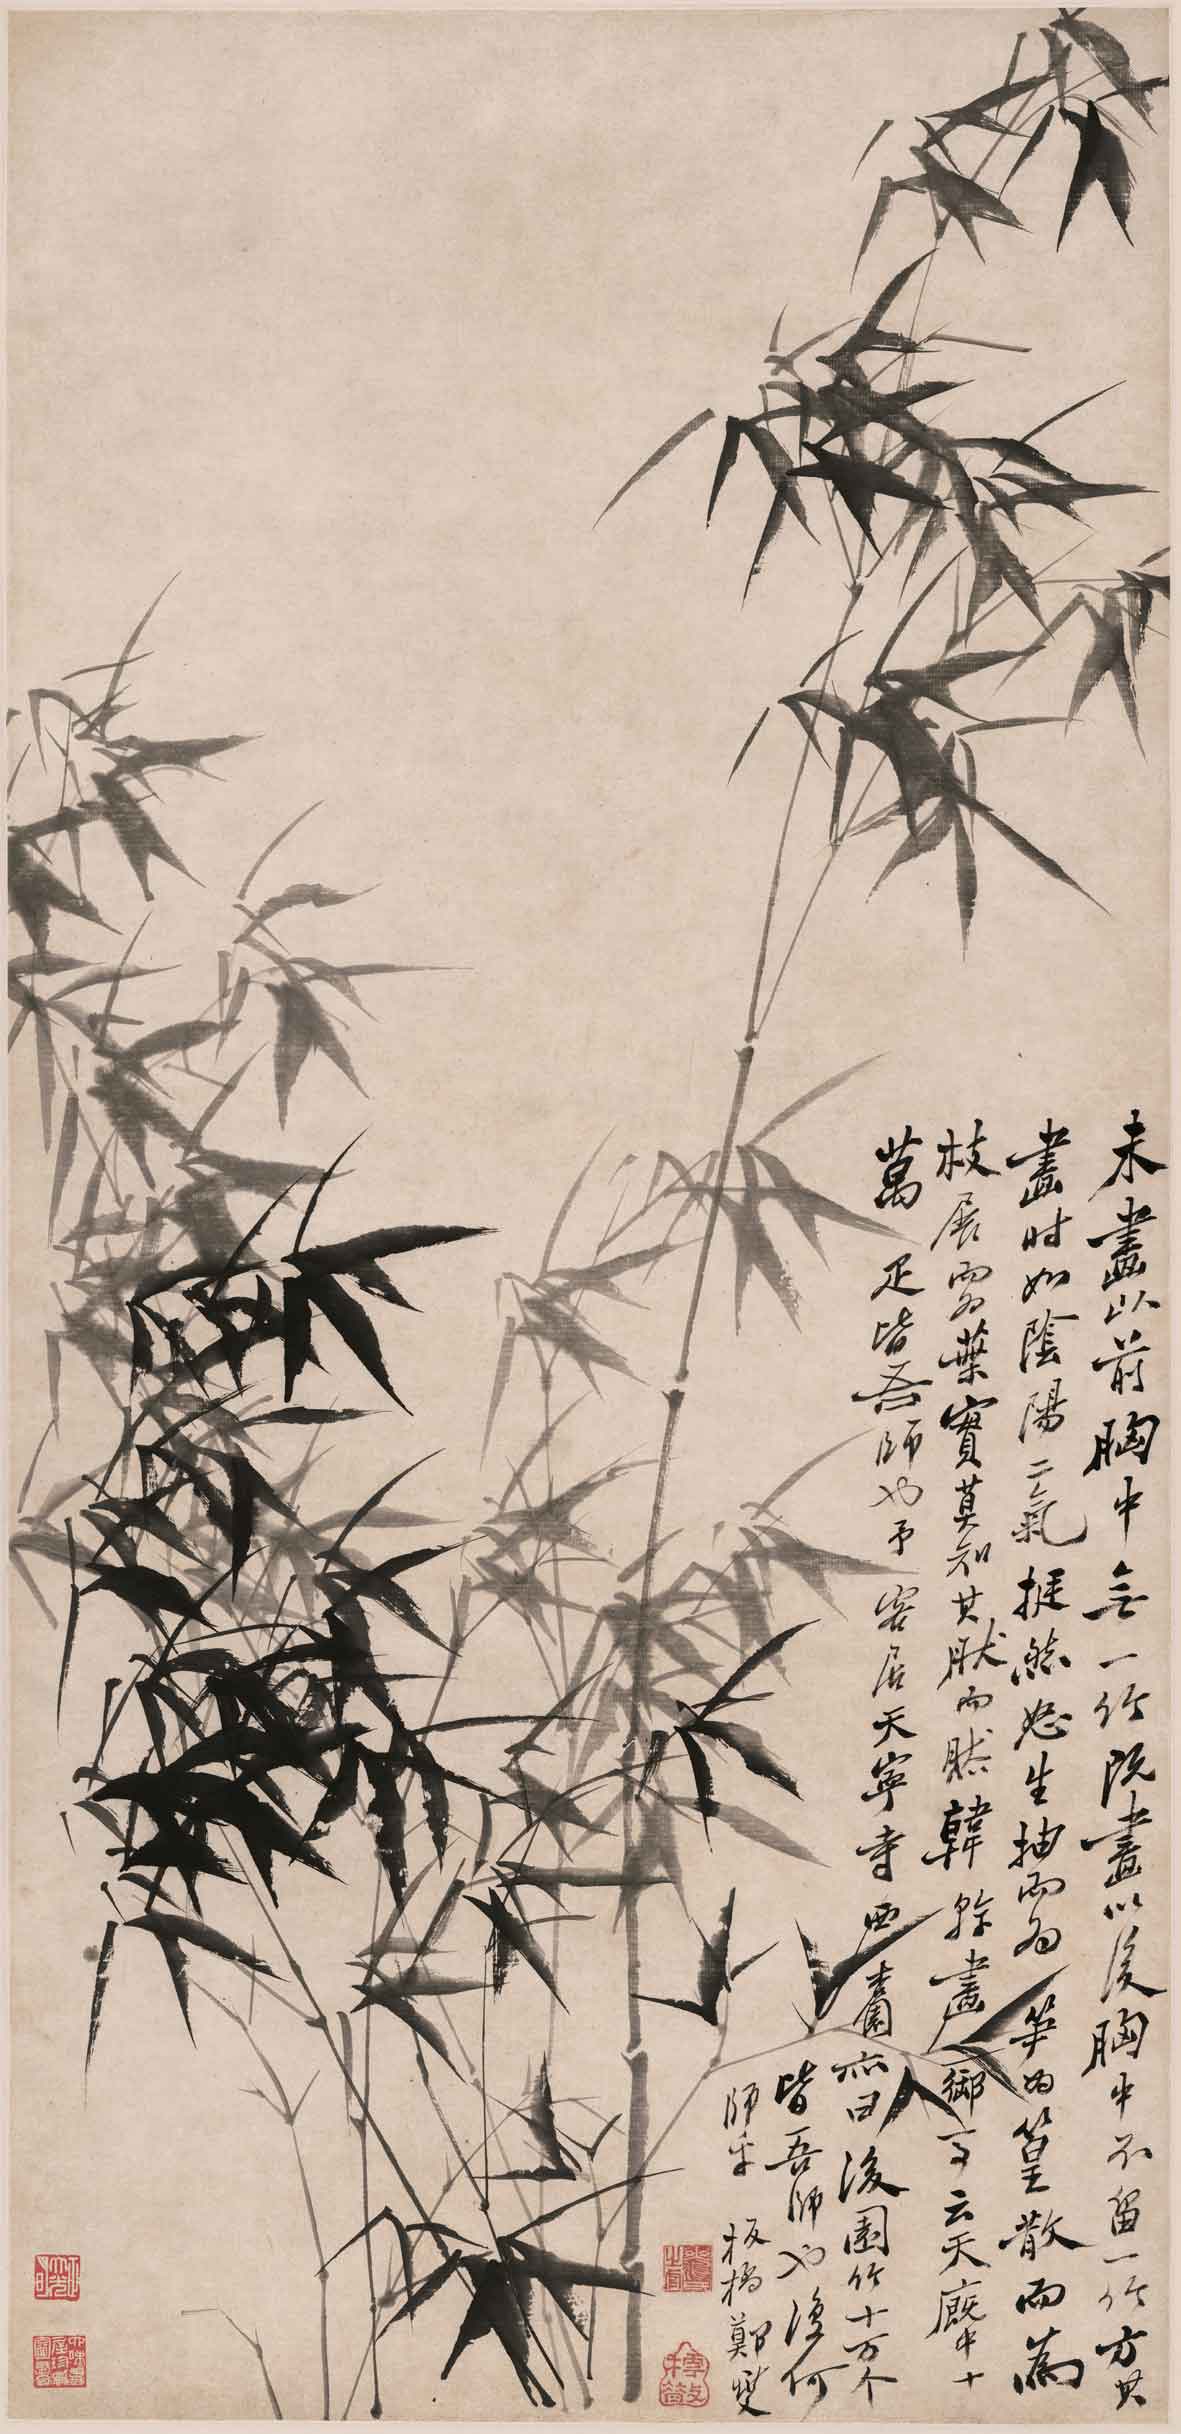 未畫以前胸中無一竹既畫以後胸中不留一竹方其
畫時如陰陽二氣挺然怒生抽而為笋為篁散而為
枝展而為葉實莫知其然而然韓幹畫御馬云天廐中十
萬疋皆吾師也予客居天寧寺西杏園亦曰後園竹十万个
皆吾師也復何
師乎板橋鄭燮